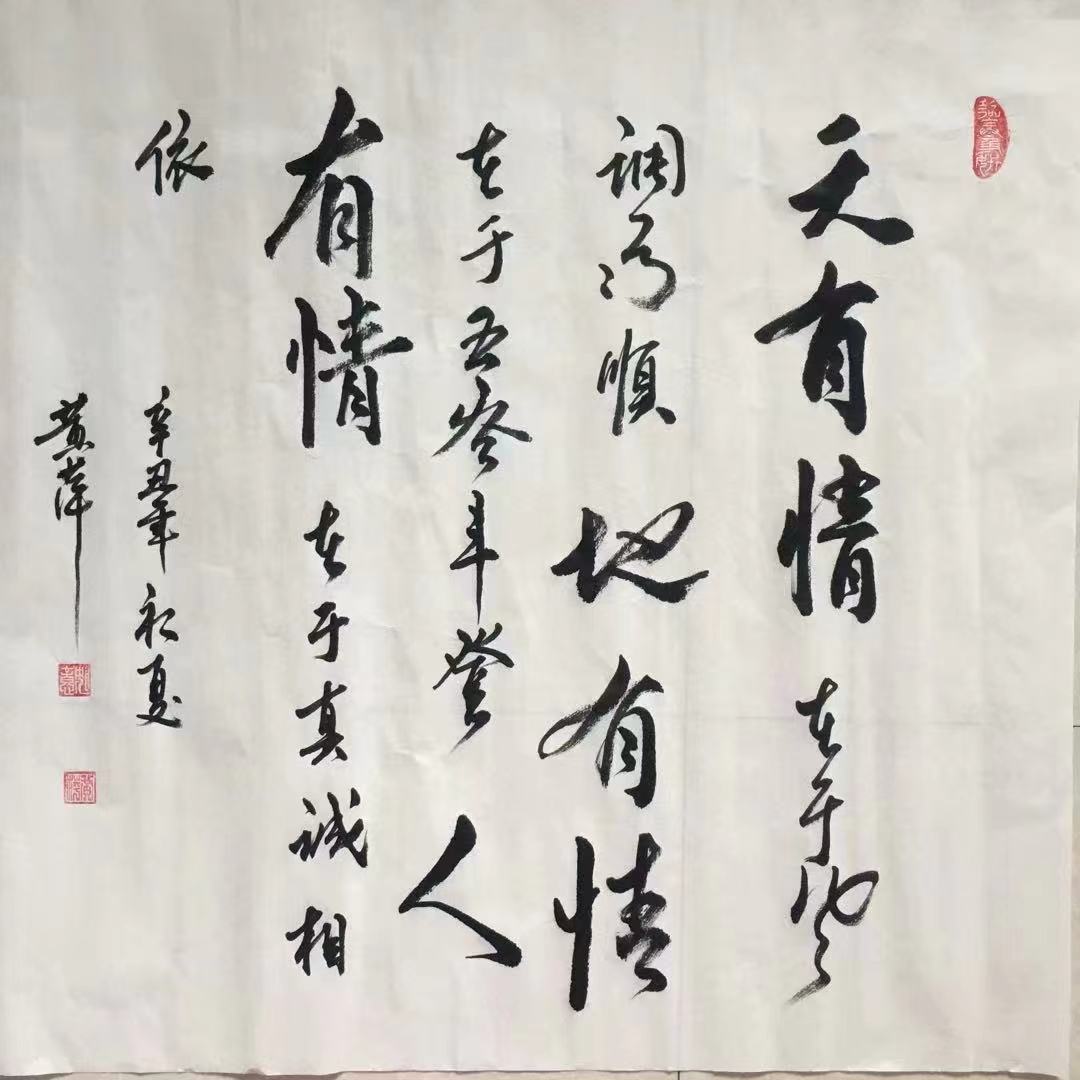 天有情在于风
调雨順地有情
在于五谷丰登人
有情在于真诚相
依 辛丑年初夏
黄萍